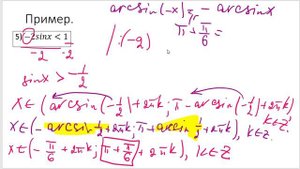 Пример.
5) -2sinx < 1
-2 -2
/:(-2)
arcsin(-x) = - arcsinx
π + π/6 =
sinx > -1/2
x ∈ (arcsin(-1/2) + 2πk; π - arcsin(-1/2) + 2πk), k ∈ Z.
x ∈ (-arcsin 1/2 + 2πk; π + arcsin 1/2 + 2πk), k ∈ Z.
x ∈ (-π/6 + 2πk; π + π/6 + 2πk), k ∈ Z